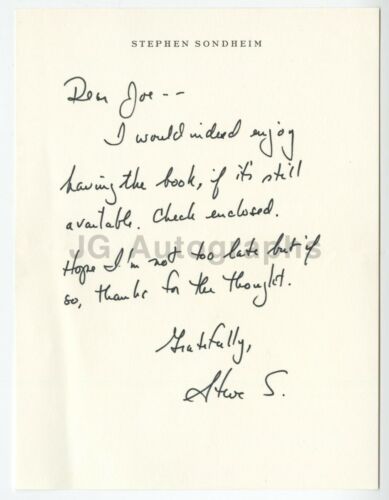 STEPHEN SONDHEIM
Dear Joe --
I would indeed enjoy
having the book, if it's still
available. Check enclosed.
JG Autographs
Hope I'm not too late but if
so, thanks for the thought.
Gratefully,
Steve S.